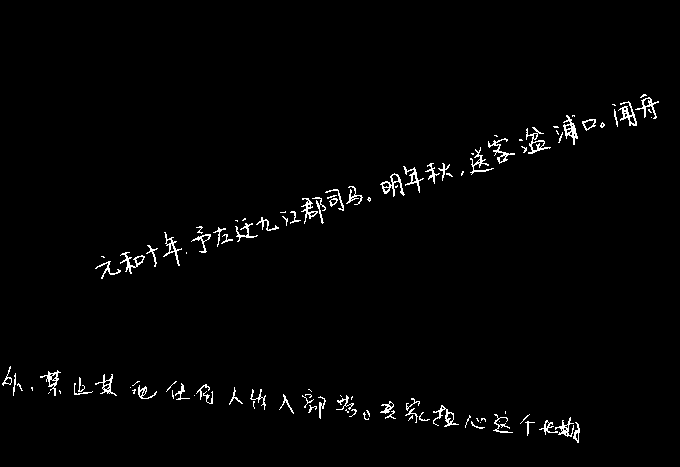 元和十年,予左迁九江郡司马。明年秋,送客湓浦口。闻舟
外,禁止其他任何人作入部落。专家担心这个长期